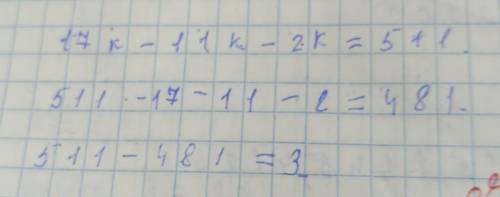 17к - 11к - 2к = 511.
511 - 17 - 11 - 2 = 481.
511 - 481 = 3